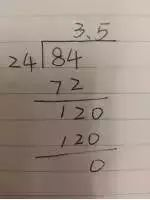 3.5
24 84
72
120
120
0